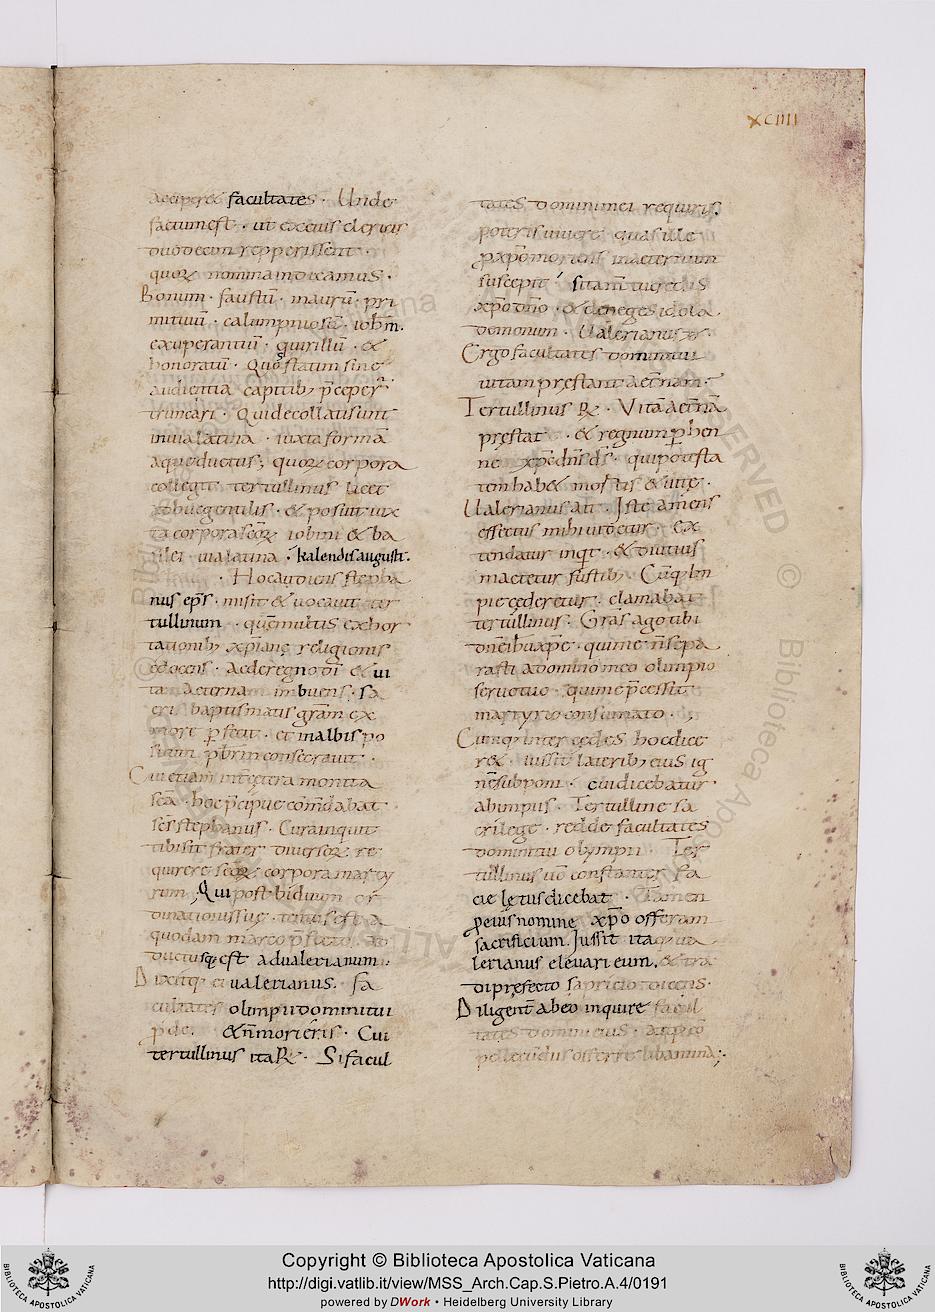 XCIIII
accipere facultates. Unde
factum est. ut ex eius clericis
duodecim repperissent.
quoꝝ nomina indicamus.
Bonum. faustū. maurū. pri
mitiuū. calumpniosū. iohēm.
exuperantiū. quirillū. &
honoratū. Quos statim sine
audientia capitib; p̄ceper̄
truncari. Qui decollati sunt
in uia latina. iuxta formā
aqueductus; quoꝝ corpora
collegit tertullinus licet
adhuc gentilis. & posuit iux
ta corpora scōꝝ iobini & ba
silei uia latina. kalendis augusti.
Hoc audiens stepha
nus ep̄s. misit & uocauit ter
tullinum. quē multis exhor
tationib; xp̄iane religionis
edocens. ac de regno dī & ui
ta aeternam imbuens. sa
cri baptismatis grām ex
more perfecit. et in albis po
situm p̄brm consecrauit.
Cui etiam int̄ cetera monita
scā. hoc p̄cipue com̄dabat
scs stephanus. Cura inquit
tibi sit frater diuersoꝝ re
quirere scōꝝ corpora marty
rum. Qui post biduum or
dinationis suę. tentus est a
quodam marco p̄fecto. ad
ductusq; est ad ualerianum.
Dixitq; ei ualerianus. Fa
cultates olimpii domini tui
& n̄ morieris. Cui
tertullinus ita ℞. Si facul
tates domini mei requiris.
poteris uiuere quas ille
ꝓ xp̄o moriens in aeternum
suscepit si tam̄ tu credis
xp̄o dn̄o. & deneges idola
demonum. Ualerianus
Ergo facultates domini tui
uitam prestant aet̄nam.
Tertullinus ℞. Vitā aet̄nā
prestat. & regnum ꝑhen
ne xp̄s dn̄s d̄s. qui potesta
tem hab& mortis & uite.
Ualerianus ait. Iste amens
effectus mihi uidetur. Ex
tendatur inqt. & diutius
mactetur fustib; Cūq; im
pie cederetur. clamabat
tertullinus. Grās ago tibi
dn̄e ihu xp̄e. qui me n̄ sepa
rasti a domino meo olimpio
seruo tuo. qui me p̄cessit
martyrio consumato.
Cumq; inter cedes hoc dice
r&. iussit laterib; eius ig
nē subponi. cui dicebatur
ab impiis. Tertulline sa
crilege. redde facultates
domini tui olympii. Ter
tullinus uō constanter fa
cie lętus dicebat. Tamen
ꝑ eius nomine xp̄o offeram
sacrificium. Jussit itaq; ua
lerianus eleuari eum. & tra
di prefecto sapricio dicens.
Diligent̄ ab eo inquire facul
tates domini eius. & ꝓprio